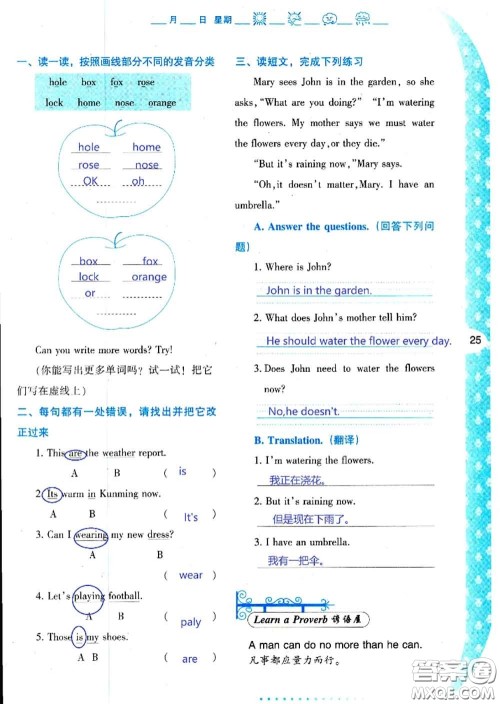 月 日 星期
一、读一读，按照画线部分不同的发音分类
hole box fox rose
lock home nose orange
hole home
rose nose
OK oh
box fox
lock orange
or
Can you write more words? Try!
(你能写出更多单词吗？试一试！把它
们写在虚线上)
二、每句都有一处错误，请找出并把它改
正过来
1. This are the weather report.
A B ( is )
2. Its warm in Kunming now.
A B ( It's )
3. Can I wearing my new dress?
A B
( wear )
4. Let's playing football.
A B ( paly )
5. Those is my shoes.
A B ( are )
三、读短文，完成下列练习
Mary sees John is in the garden, so she
asks, "What are you doing?" "I'm watering
the flowers. My mother says we must water
the flowers every day, or they die."
"But it's raining now", Mary says.
"Oh, it doesn't matter, Mary. I have an
umbrella."
A. Answer the questions. (回答下列问
题)
1. Where is John?
John is in the garden.
2. What does John's mother tell him?
He should water the flower every day.
3. Does John need to water the flowers
now?
No,he doesn't.
B. Translation. (翻译)
1. I'm watering the flowers.
我正在浇花。
2. But it's raining now.
但是现在下雨了。
3. I have an umbrella.
我有一把伞。
Learn a Proverb 谚语屋
A man can do no more than he can.
凡事都应量力而行。
25
答案圈
MXQE.COM